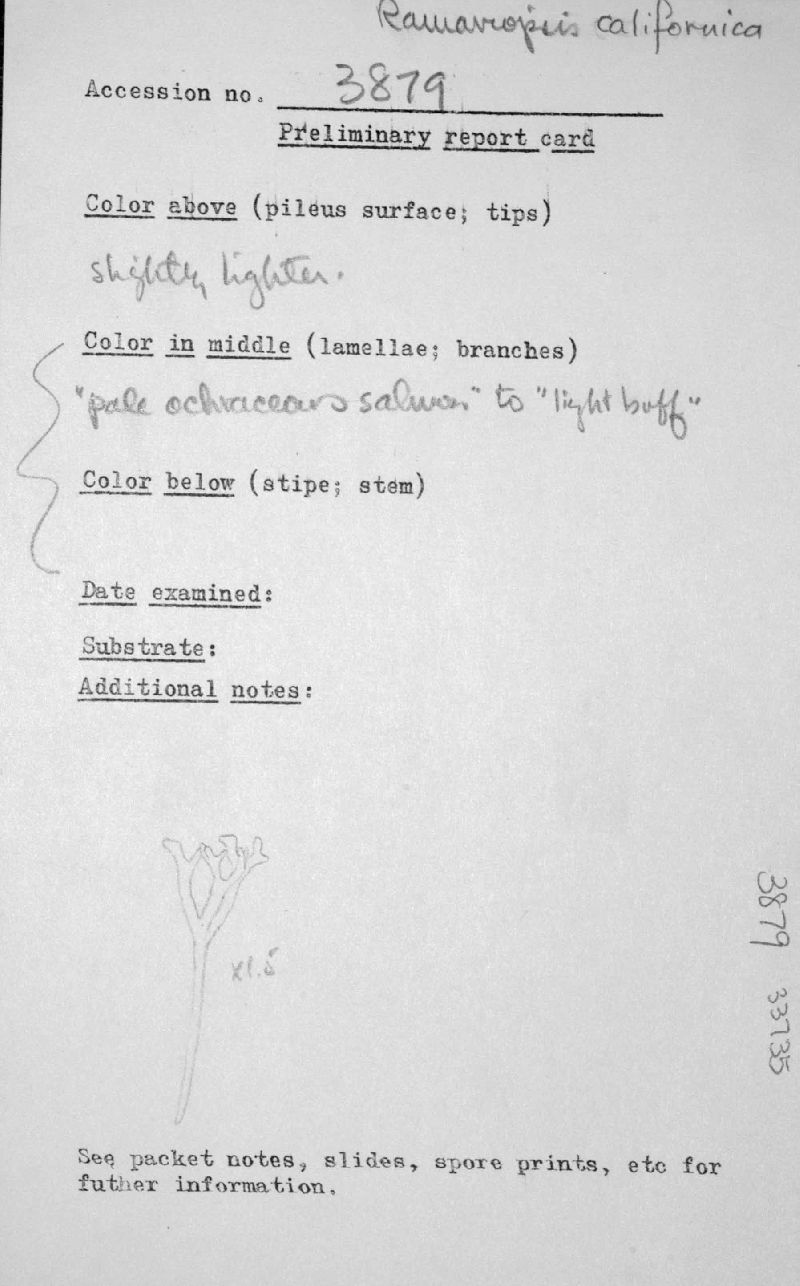 Ramariopsis californica
Accession no. 3879
Preliminary report card
Color above (pileus surface; tips)
slightly lighter.
Color in middle (lamellae; branches)
"pale ochraceous salmon" to "light buff"
Color below (stipe; stem)
Date examined:
Substrate:
Additional notes:
x1.5
3879 33735
See packet notes, slides, spore prints, etc for
futher information.